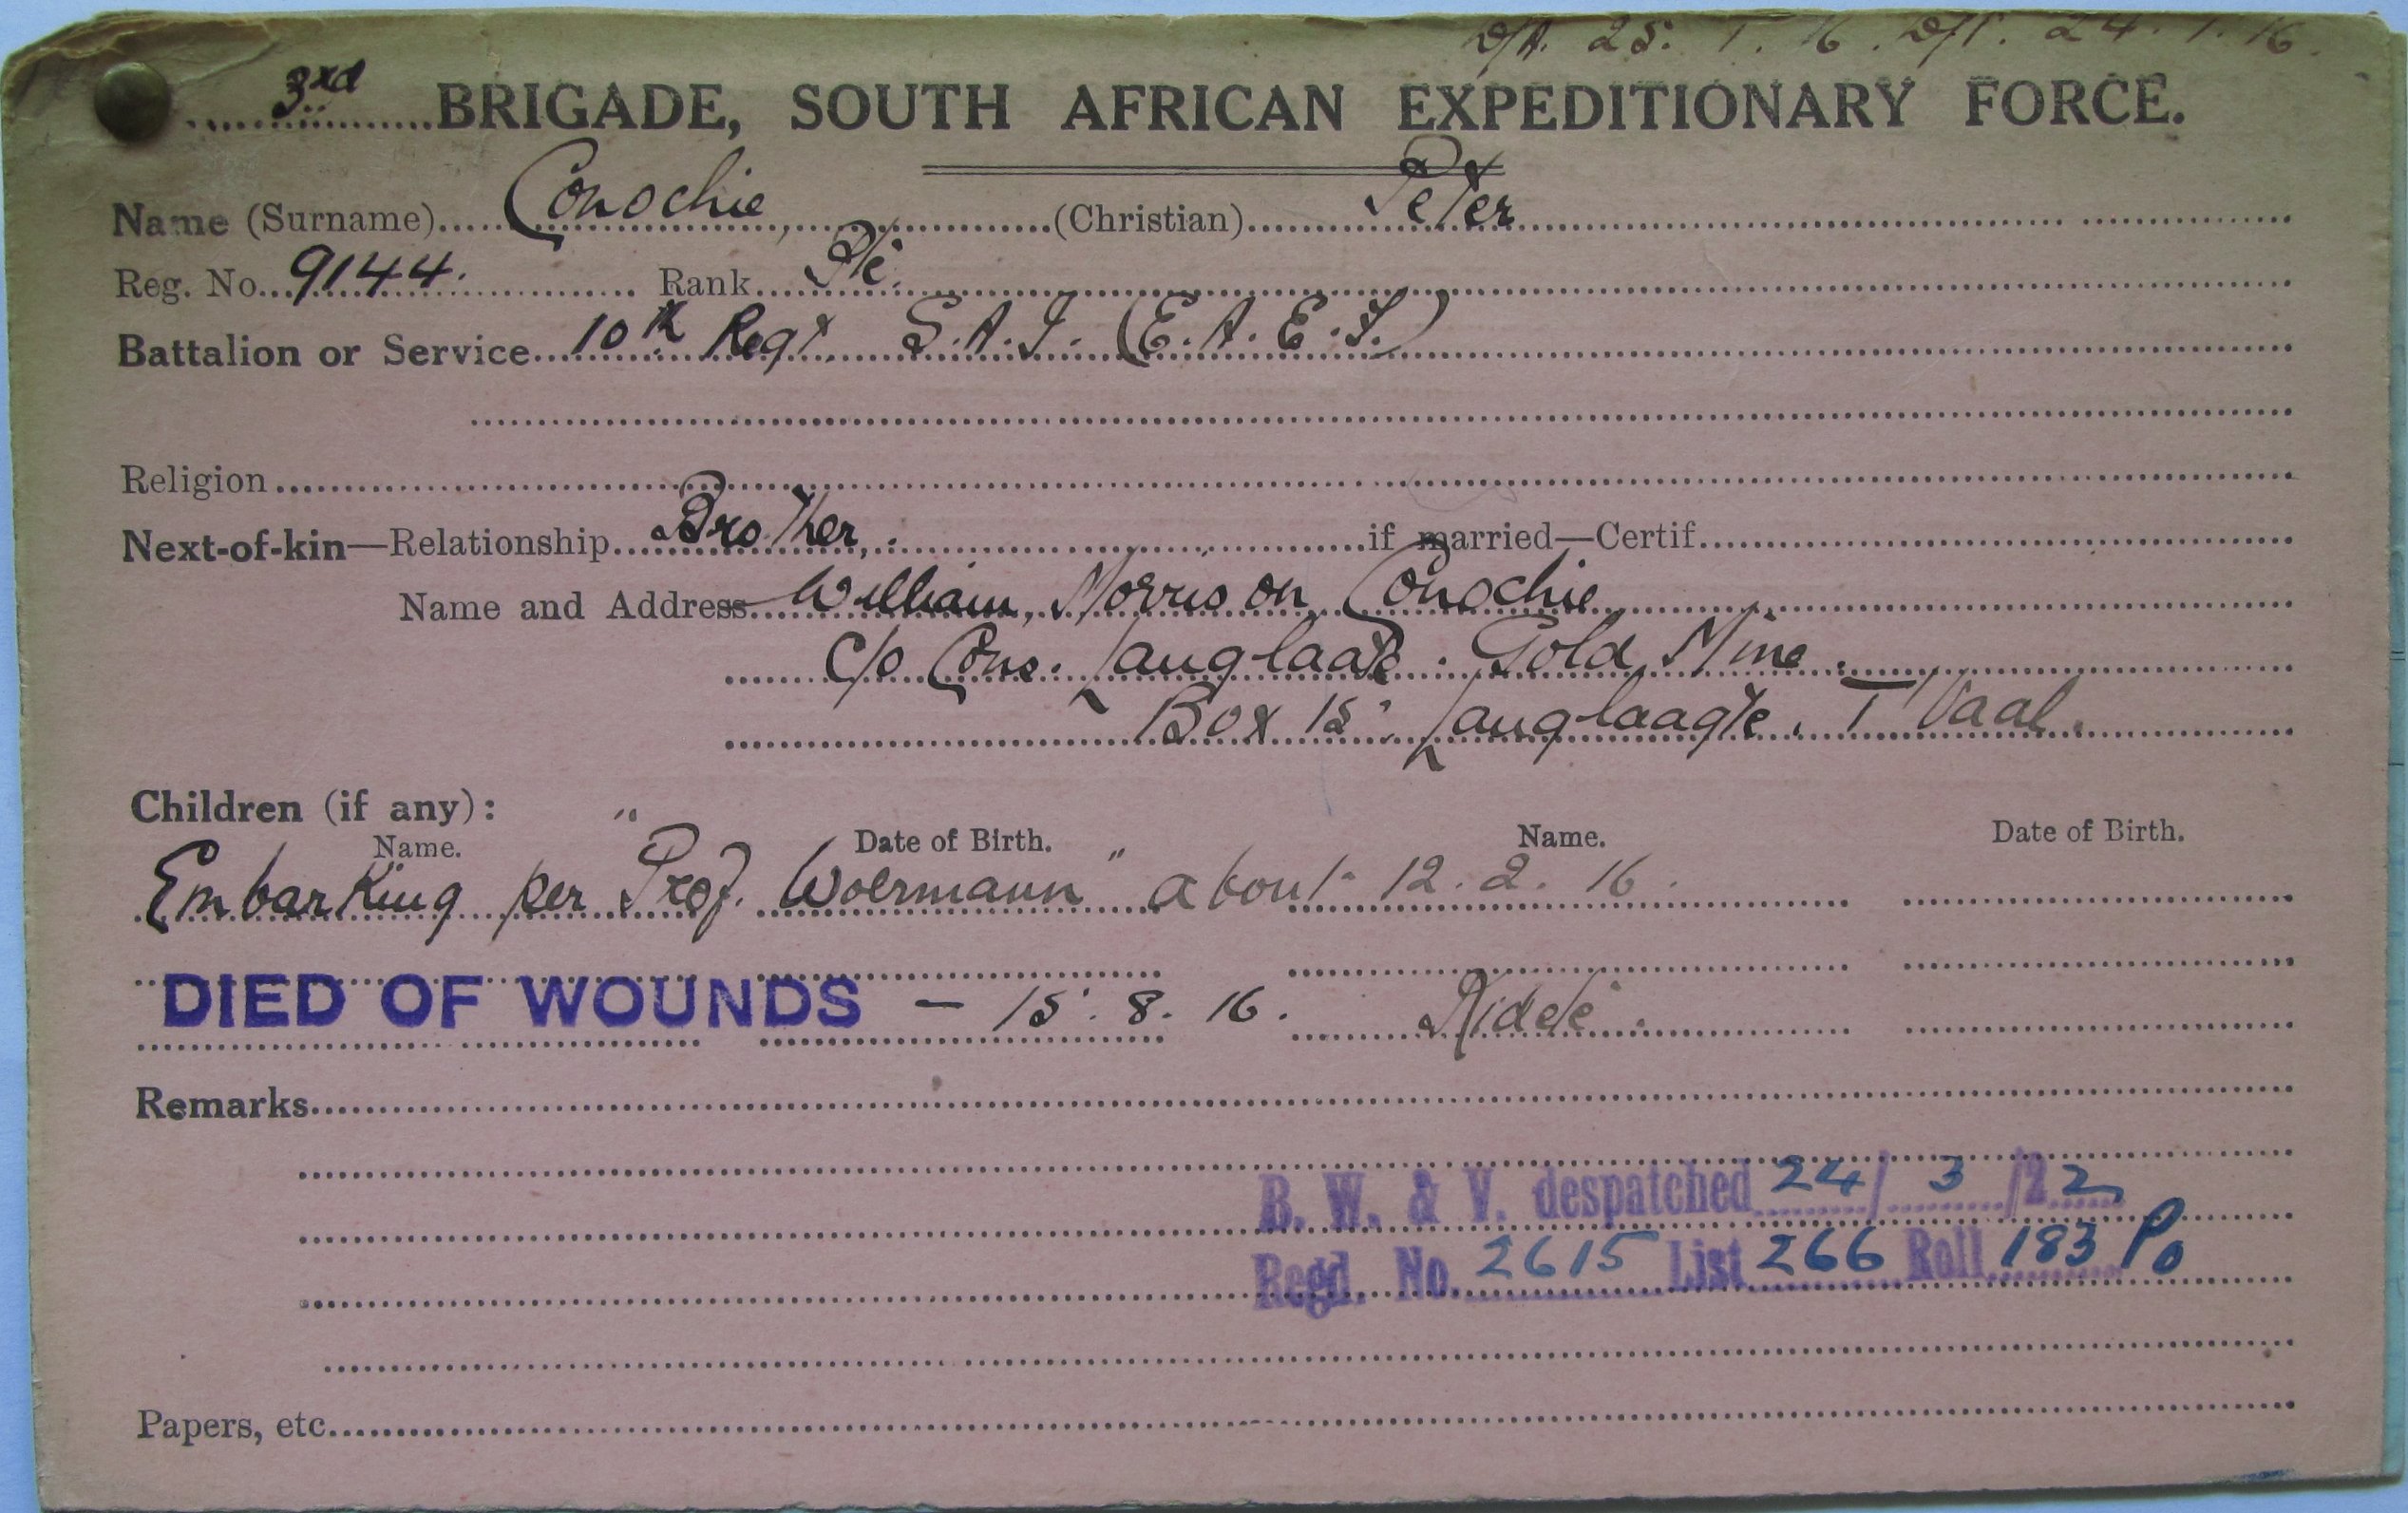 D/A. 25. 1. 16. D/P. 24. 1. 16.
3rd BRIGADE, SOUTH AFRICAN EXPEDITIONARY FORCE.
Name (Surname) Conochie, (Christian) Peter
Reg. No. 9144. Rank Pte.
Battalion or Service 10th Regt. S.A.I. (E.A.E.F.)
Religion
Next-of-kin—Relationship Brother, if married—Certif.
Name and Address William Morrison Conochie
c/o Cons. Langlaate Gold Mine.
Box 15. Langlaagte. T'Vaal.
Children (if any):
Name. Date of Birth. Name. Date of Birth.
Embarking per "Prof. Woermann" about 12.2.16.
DIED OF WOUNDS — 15.8.16.
Remarks
B. W. & V. despatched 24/3/22
Regd. No. 2615 List 266 Roll 183 Po
Papers, etc.